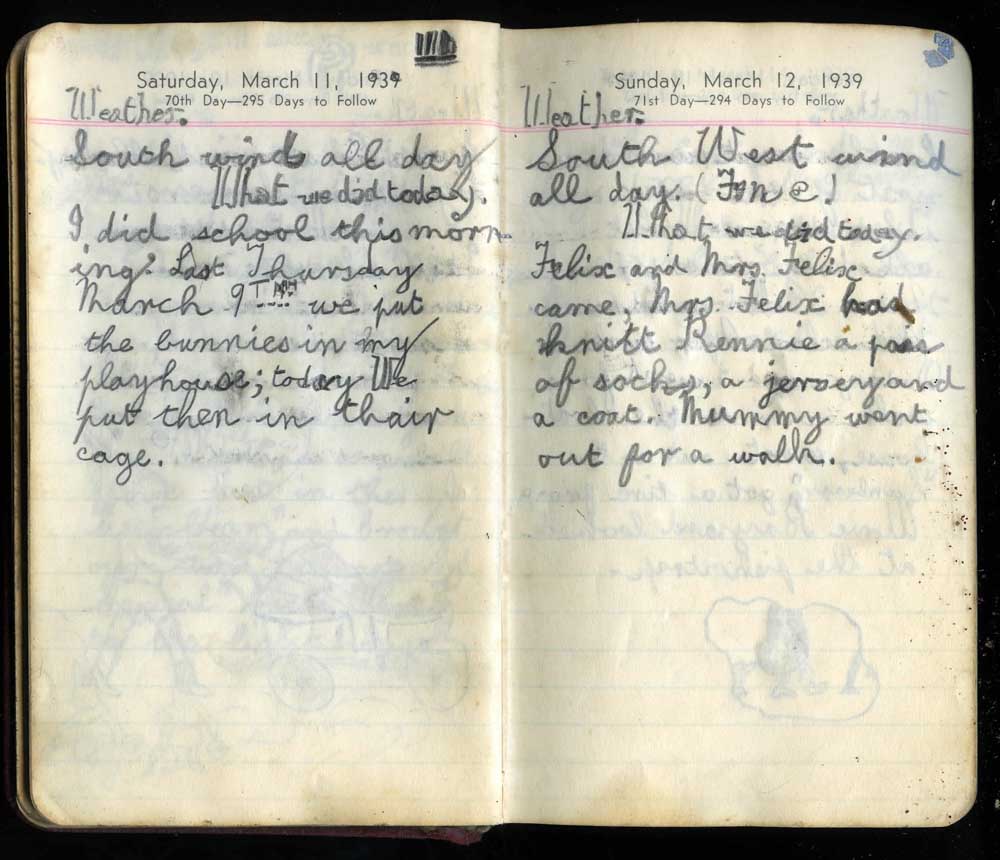 Saturday, March 11, 1939
70th Day—295 Days to Follow
Weather.
South wind all day
What we did today.
I did school this morn-
ing. Last Thursday
March 9TH we put
the bunnies in my
playhouse; today We
put then in thair
cage.
Sunday, March 12, 1939
71st Day—294 Days to Follow
Weather.
South West wind
all day. (Fine)
What we did today.
Felix and Mrs. Felix
came, Mrs. Felix had
knitt Rennie a pair
of socks, a jersery and
a coat. Mummy went
out for a walk.